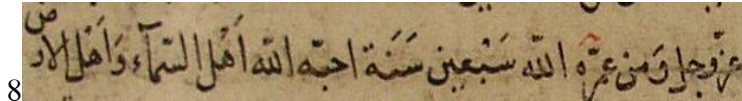 8 عزّوجلّ وَمن عمّره اللّه سَبْعين سَنَة احبّه اللّه اَهْل السّمآء وَاَهْل الارض